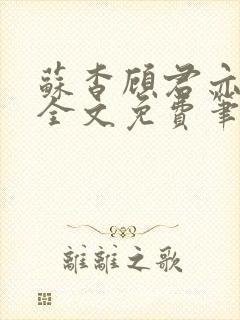 蘇杳顧君亦
全文免費筆
離離之歌